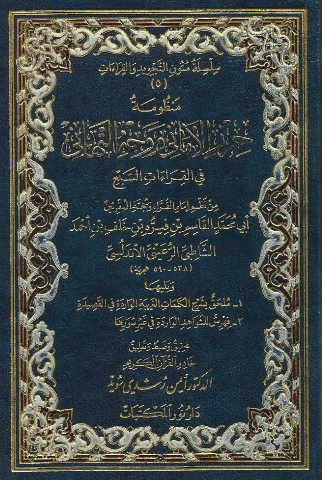 سلسلة متون التجويد والقراءات
(٥)
منظومة
حرز الأماني ووجه التهاني
في القراءات السبع
من نظم إمام القراء وحجة المقرئين
أبي محمد القاسم بن فيره بن خلف بن أحمد
الشاطبي الرعيني الأندلسي
(٥٣٨ - ٥٩٠ هجرية)
ويليها
١- ملحق بشرح الكلمات الغريبة الواردة في القصيدة
٢- فهرس للشواهد الواردة في غير سورها
وضبط وتعليق
خادم القرآن الكريم
الدكتور أيمن رشدي سويد
دار نور المكتبات